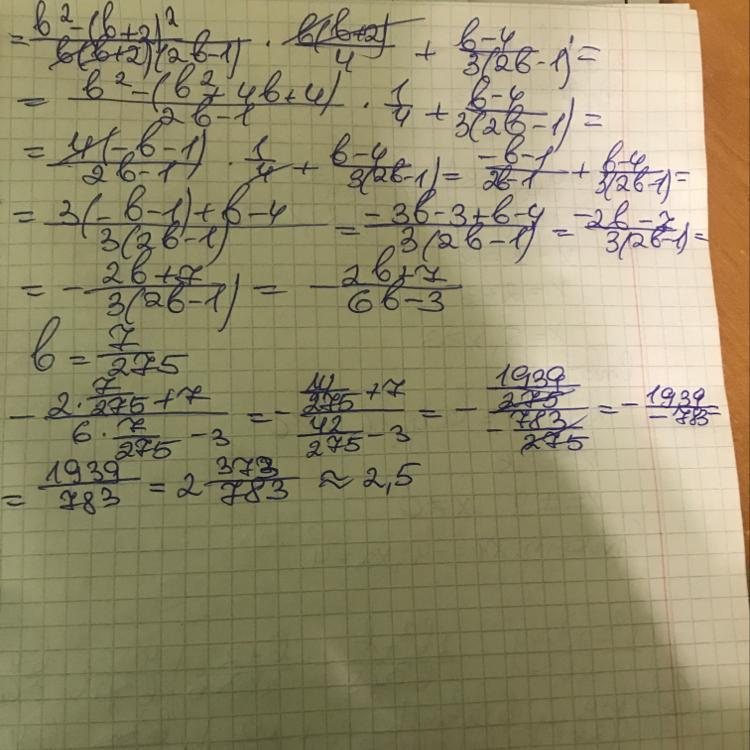 = (b² - (b+2)²)/(b(b+2)(2b-1)) · (b(b+2))/4 + (b-4)/(3(2b-1)) =
= (b² - (b² + 4b + 4))/(2b-1) · 1/4 + (b-4)/(3(2b-1)) =
= (4(-b-1))/(2b-1) · 1/4 + (b-4)/(3(2b-1)) = (-b-1)/(2b-1) + (b-4)/(3(2b-1)) =
= (3(-b-1)+b-4)/(3(2b-1)) = (-3b-3+b-4)/(3(2b-1)) = (-2b-7)/(3(2b-1)) =
= - (2b+7)/(3(2b-1)) = - (2b+7)/(6b-3)
b = 7/275
- (2·7/275 + 7)/(6·7/275 - 3) = - (14/275 + 7)/(42/275 - 3) = - (1939/275)/(-783/275) = - 1939/-783
= 1939/783 = 2 373/783 ≈ 2,5